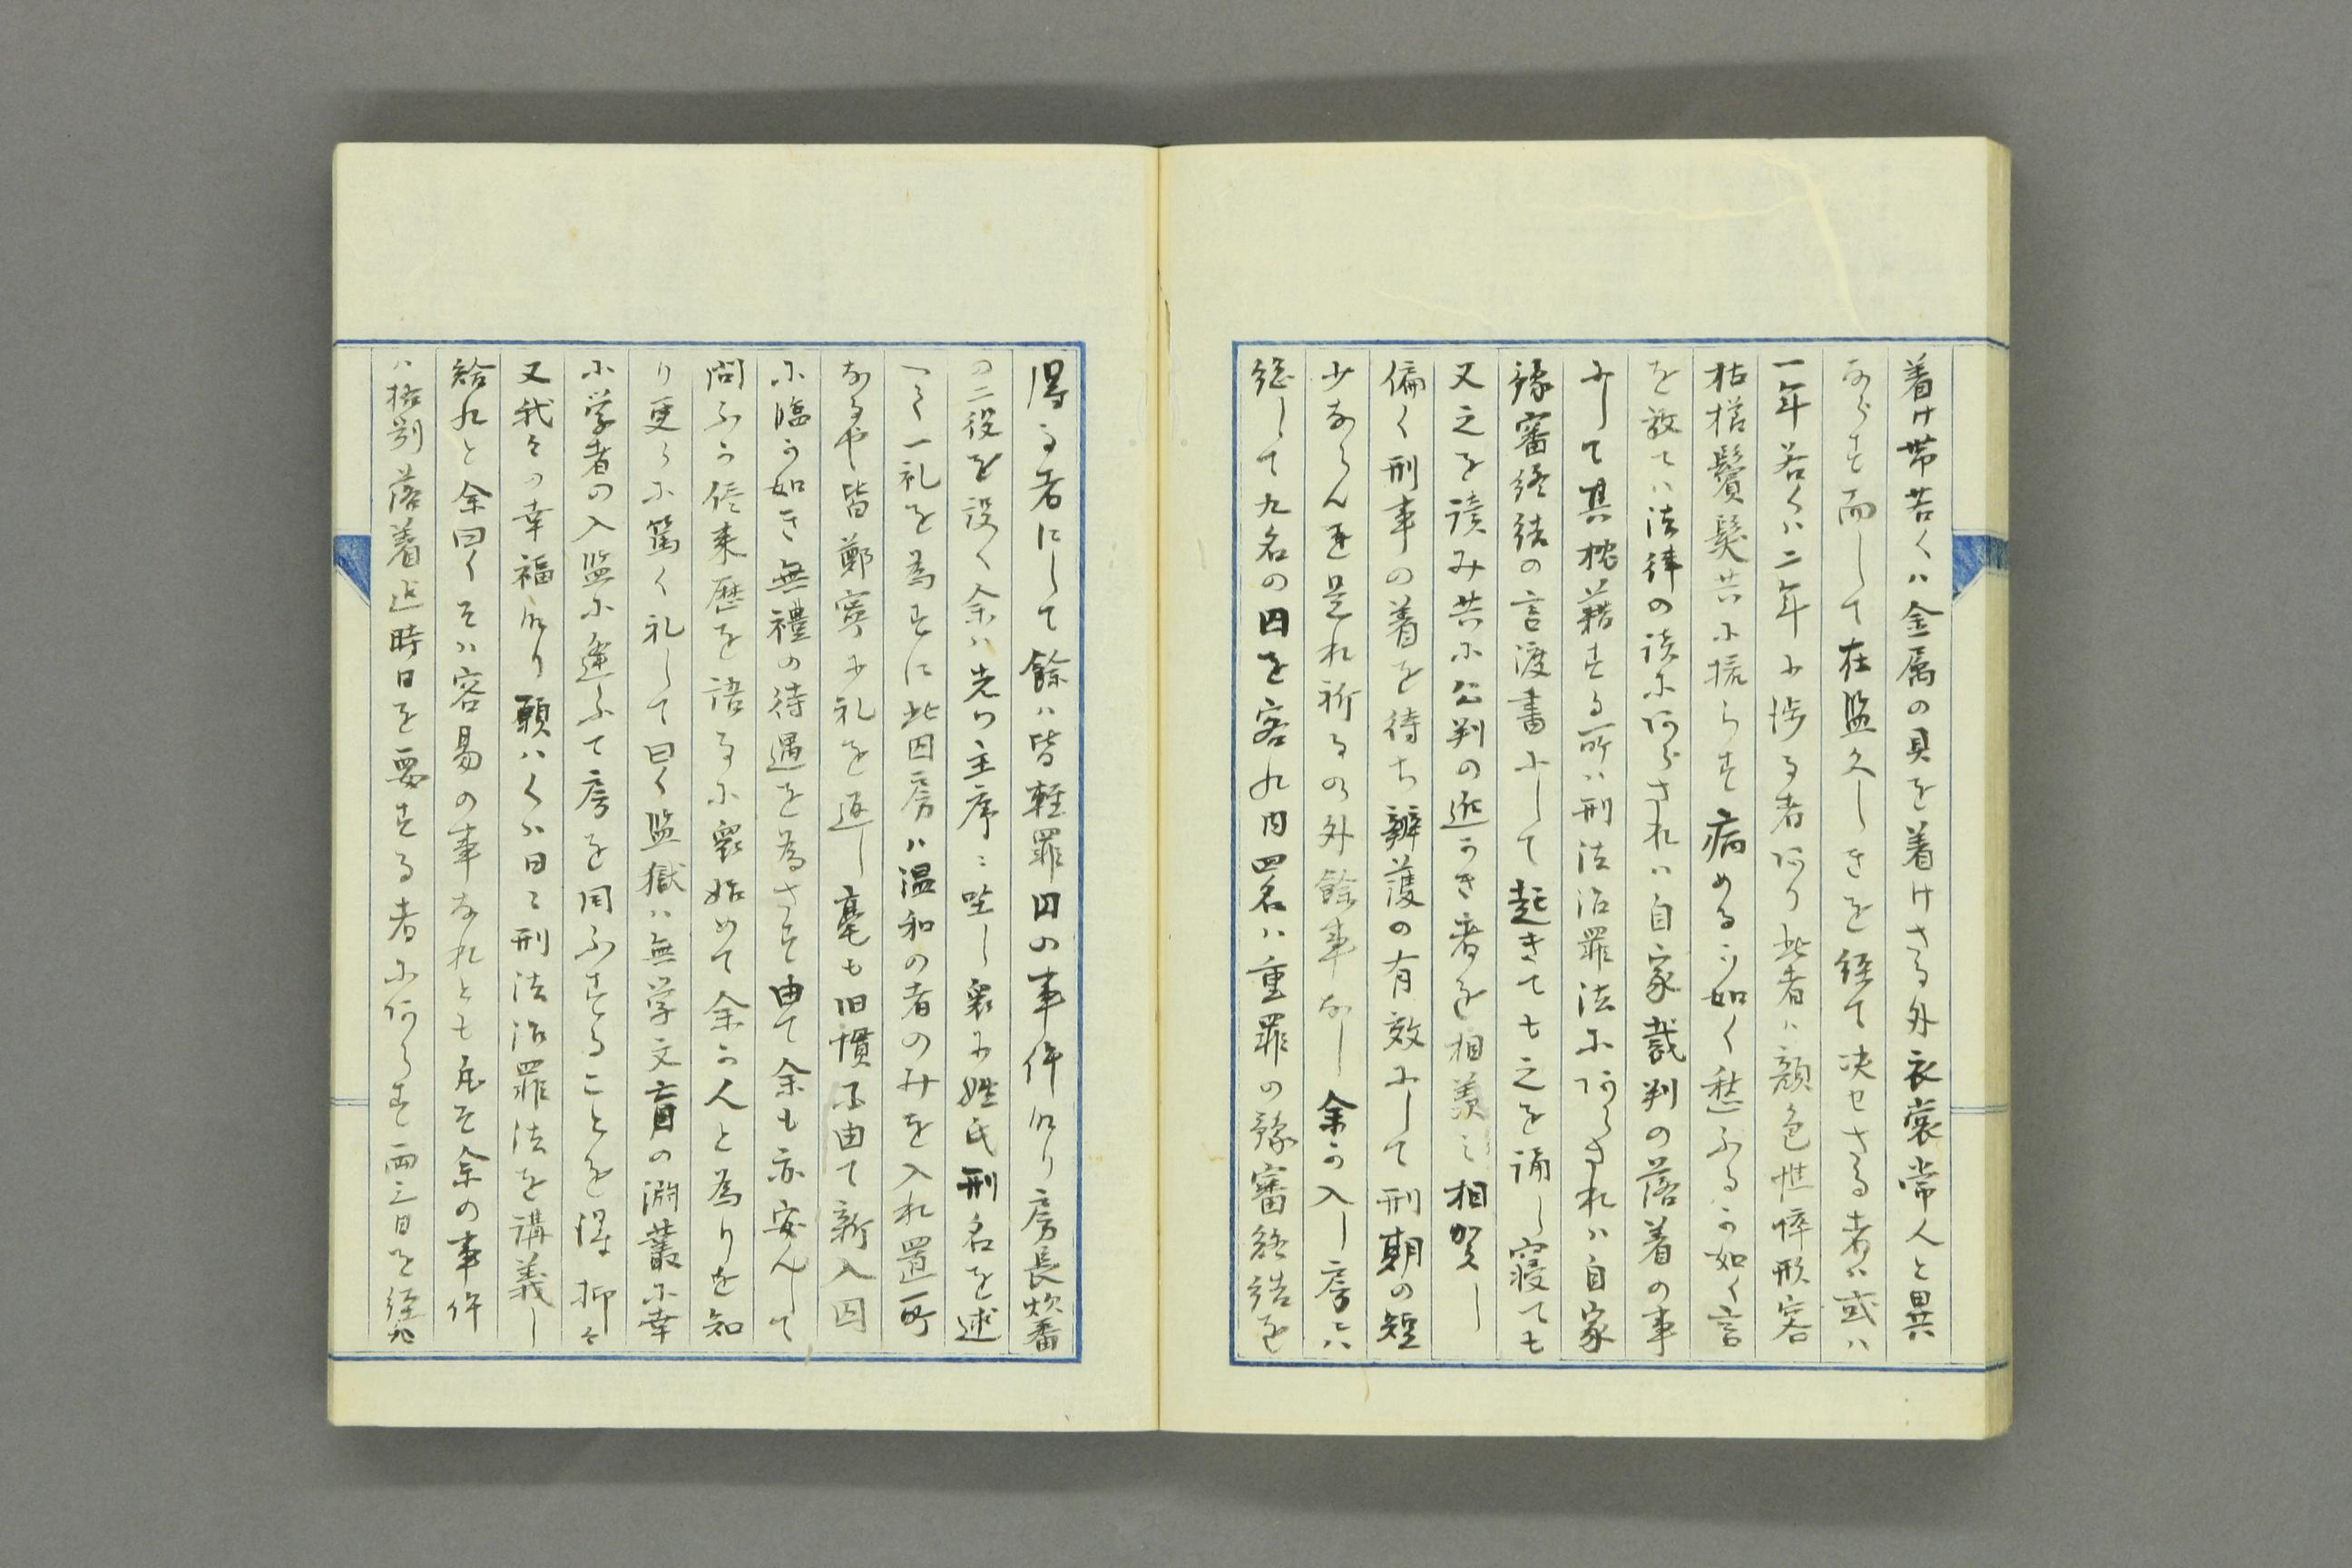 着け帯若くハ金属の具を着けさる外衣裳常人と異
ならす而して在監久しきを経て决せさる者ハ或ハ
一年若くハ二年に渉る者あり此者ハ顔色憔悴形容
枯槁鬢髪共に振らす病めるか如く愁ふるか如く言
を放てハ法律の談にあらされハ自家裁判の落着の事
にして其枕藉する所ハ刑法治罪法にあらされハ自家
豫審終結の言渡書にして起きても之を誦し寝ても
又之を読み共に公判の近かき者を相羨ミ相賀し
偏く刑事の着を待ち辨護の有效にして刑期の短
少ならん事是れ祈るの外餘事なし余か入し房ハ
総して九名の囚を容れ内四名ハ重罪の豫審終結を
得る者にして餘ハ皆軽罪囚の事件なり房長炊番
の二役を設く余ハ先つ主席に坐し衆に姓氏刑名を述
へて一礼を為すに此囚房ハ温和の者のみを入れ置所
なるや皆鄭寧に礼を返し毫も旧慣に由て新入囚
に臨か如き無禮の待遇を為さす由て余も亦安んして
問ふか儘来歴を語るに衆始めて余か人と為りを知
り更らに篤く礼して曰く監獄ハ無学文盲の淵叢に幸
に学者の入監に逢ふて房を同ふすることを得抑々
又我々の幸福なり願ハくハ日々刑法治罪法を講義し
給れと余曰くそハ容易の事なれとも凡そ余の事件
ハ格別落着迄時日を要する者にあらす両三日を経れハ